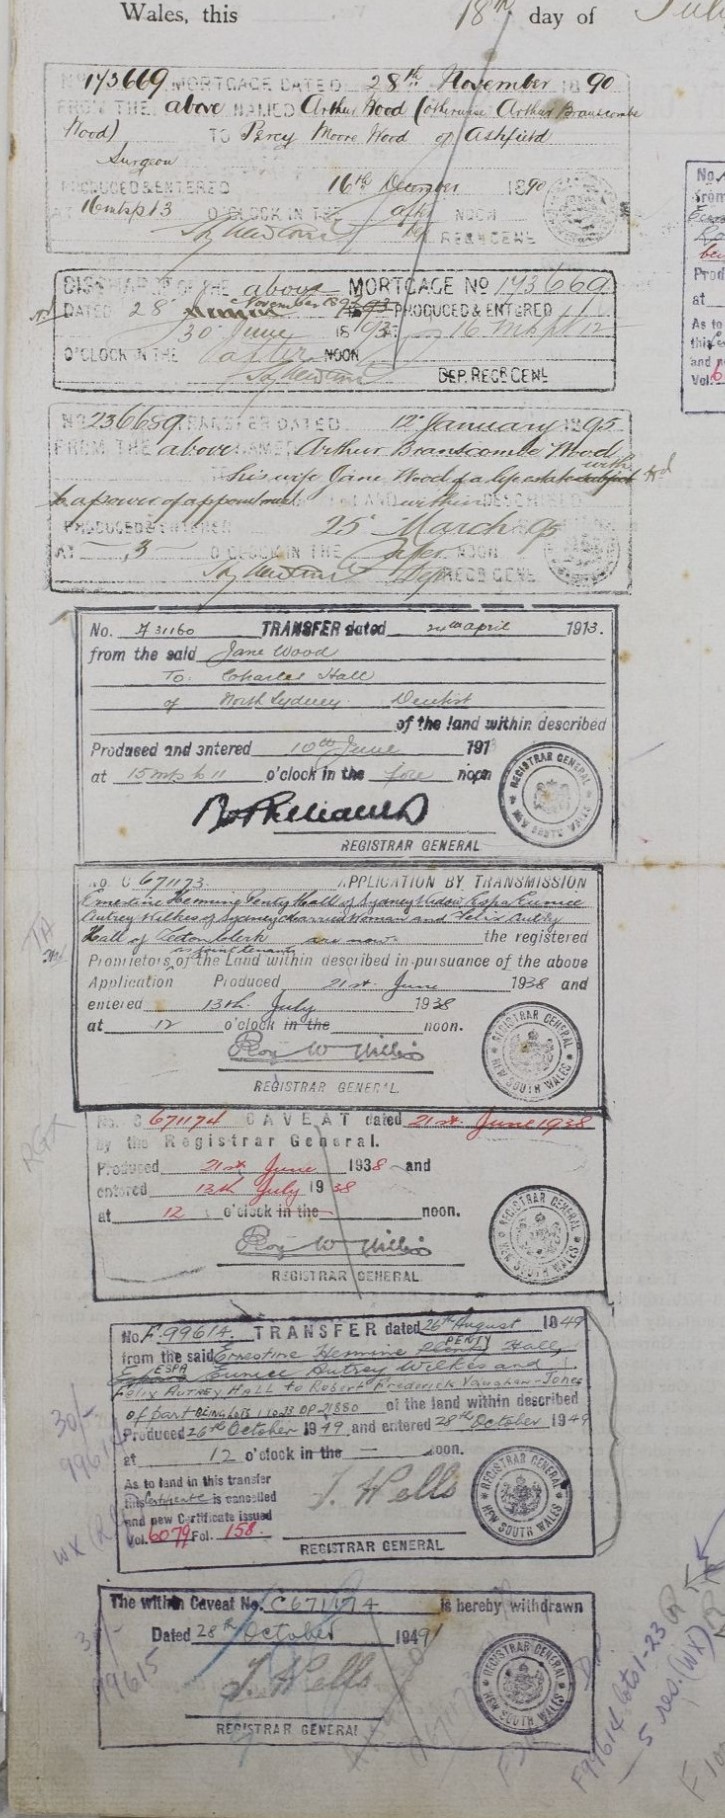 Wales, this 18th day of
No 173669 MORTGAGE DATED 28th November 1890
FROM THE above NAMED Arthur Wood (otherwise Arthur Branscombe
Wood) TO Percy Moore Wood of Ashfield
Surgeon
PRODUCED & ENTERED 16th December 1890
AT 16 mts pt 3 O'CLOCK IN THE after NOON
REGR GENL
DISCHARGE OF THE above MORTGAGE No 173669
DATED 28 November 1893 PRODUCED & ENTERED
30 June 1893 AT 16 mts pt 12
O'CLOCK IN THE after NOON
DEP. REGR GENL
No 236659 TRANSFER DATED 12 January 1895
FROM THE above NAMED Arthur Branscombe Wood
TO his wife Jane Wood of a life estate subject with
to a power of appointment LAND within DESCRIBED
PRODUCED & ENTERED 25 March 95
AT 3 O'CLOCK IN THE after NOON
Dep REGR GENL
No. A 31160 TRANSFER dated 24th april 1913.
from the said Jane Wood
To: Charles Hall
of North Sydney Dentist
of the land within described
Produced and entered 10th June 1913
at 15 mts to 11 o'clock in the fore noon
REGISTRAR GENERAL
REGISTRAR GENERAL NEW SOUTH WALES
No. C 671173 APPLICATION BY TRANSMISSION
Ernestine Hemming Penty Hall of Sydney Widow Espa Eunice
Autrey Wilkes of Sydney Married Woman and Felix Autrey
Hall of Leeton Clerk are now the registered
as joint tenants
Proprietors of the Land within described in pursuance of the above
Application Produced 21st June 1938 and
entered 13th July 1938
at 12 o'clock in the noon.
REGISTRAR GENERAL
REGISTRAR GENERAL NEW SOUTH WALES
No. C 671174 CAVEAT dated 21st June 1938
by the Registrar General.
Produced 21st June 1938 and
entered 13th July 1938
at 12 o'clock in the noon.
REGISTRAR GENERAL
REGISTRAR GENERAL NEW SOUTH WALES
No. F 99614. TRANSFER dated 26th August 1949
PENTY
from the said Ernestine Hermine Hall,
ESPA
Eunice Autrey Wilkes and
Felix AUTREY HALL to Robert Frederick Vaughan-Jones
of part BEING LOTS 1 TO 23 DP 21880 of the land within described
Produced 26th October 1949 and entered 28th October 1949
at 12 o'clock in the — noon.
As to land in this transfer
this Certificate is cancelled
and new Certificate issued
Vol. 6079 Fol. 158.
J. Wells
REGISTRAR GENERAL
REGISTRAR GENERAL NEW SOUTH WALES
The within Caveat No. C671174 is hereby withdrawn
Dated 28th October 1949
J. Wells
REGISTRAR GENERAL
REGISTRAR GENERAL NEW SOUTH WALES
30/-
99614
99615
F99614 lots 1-23
5 res. (WX)
No.
from
Prod
at
As to
this
and
Vol. 6